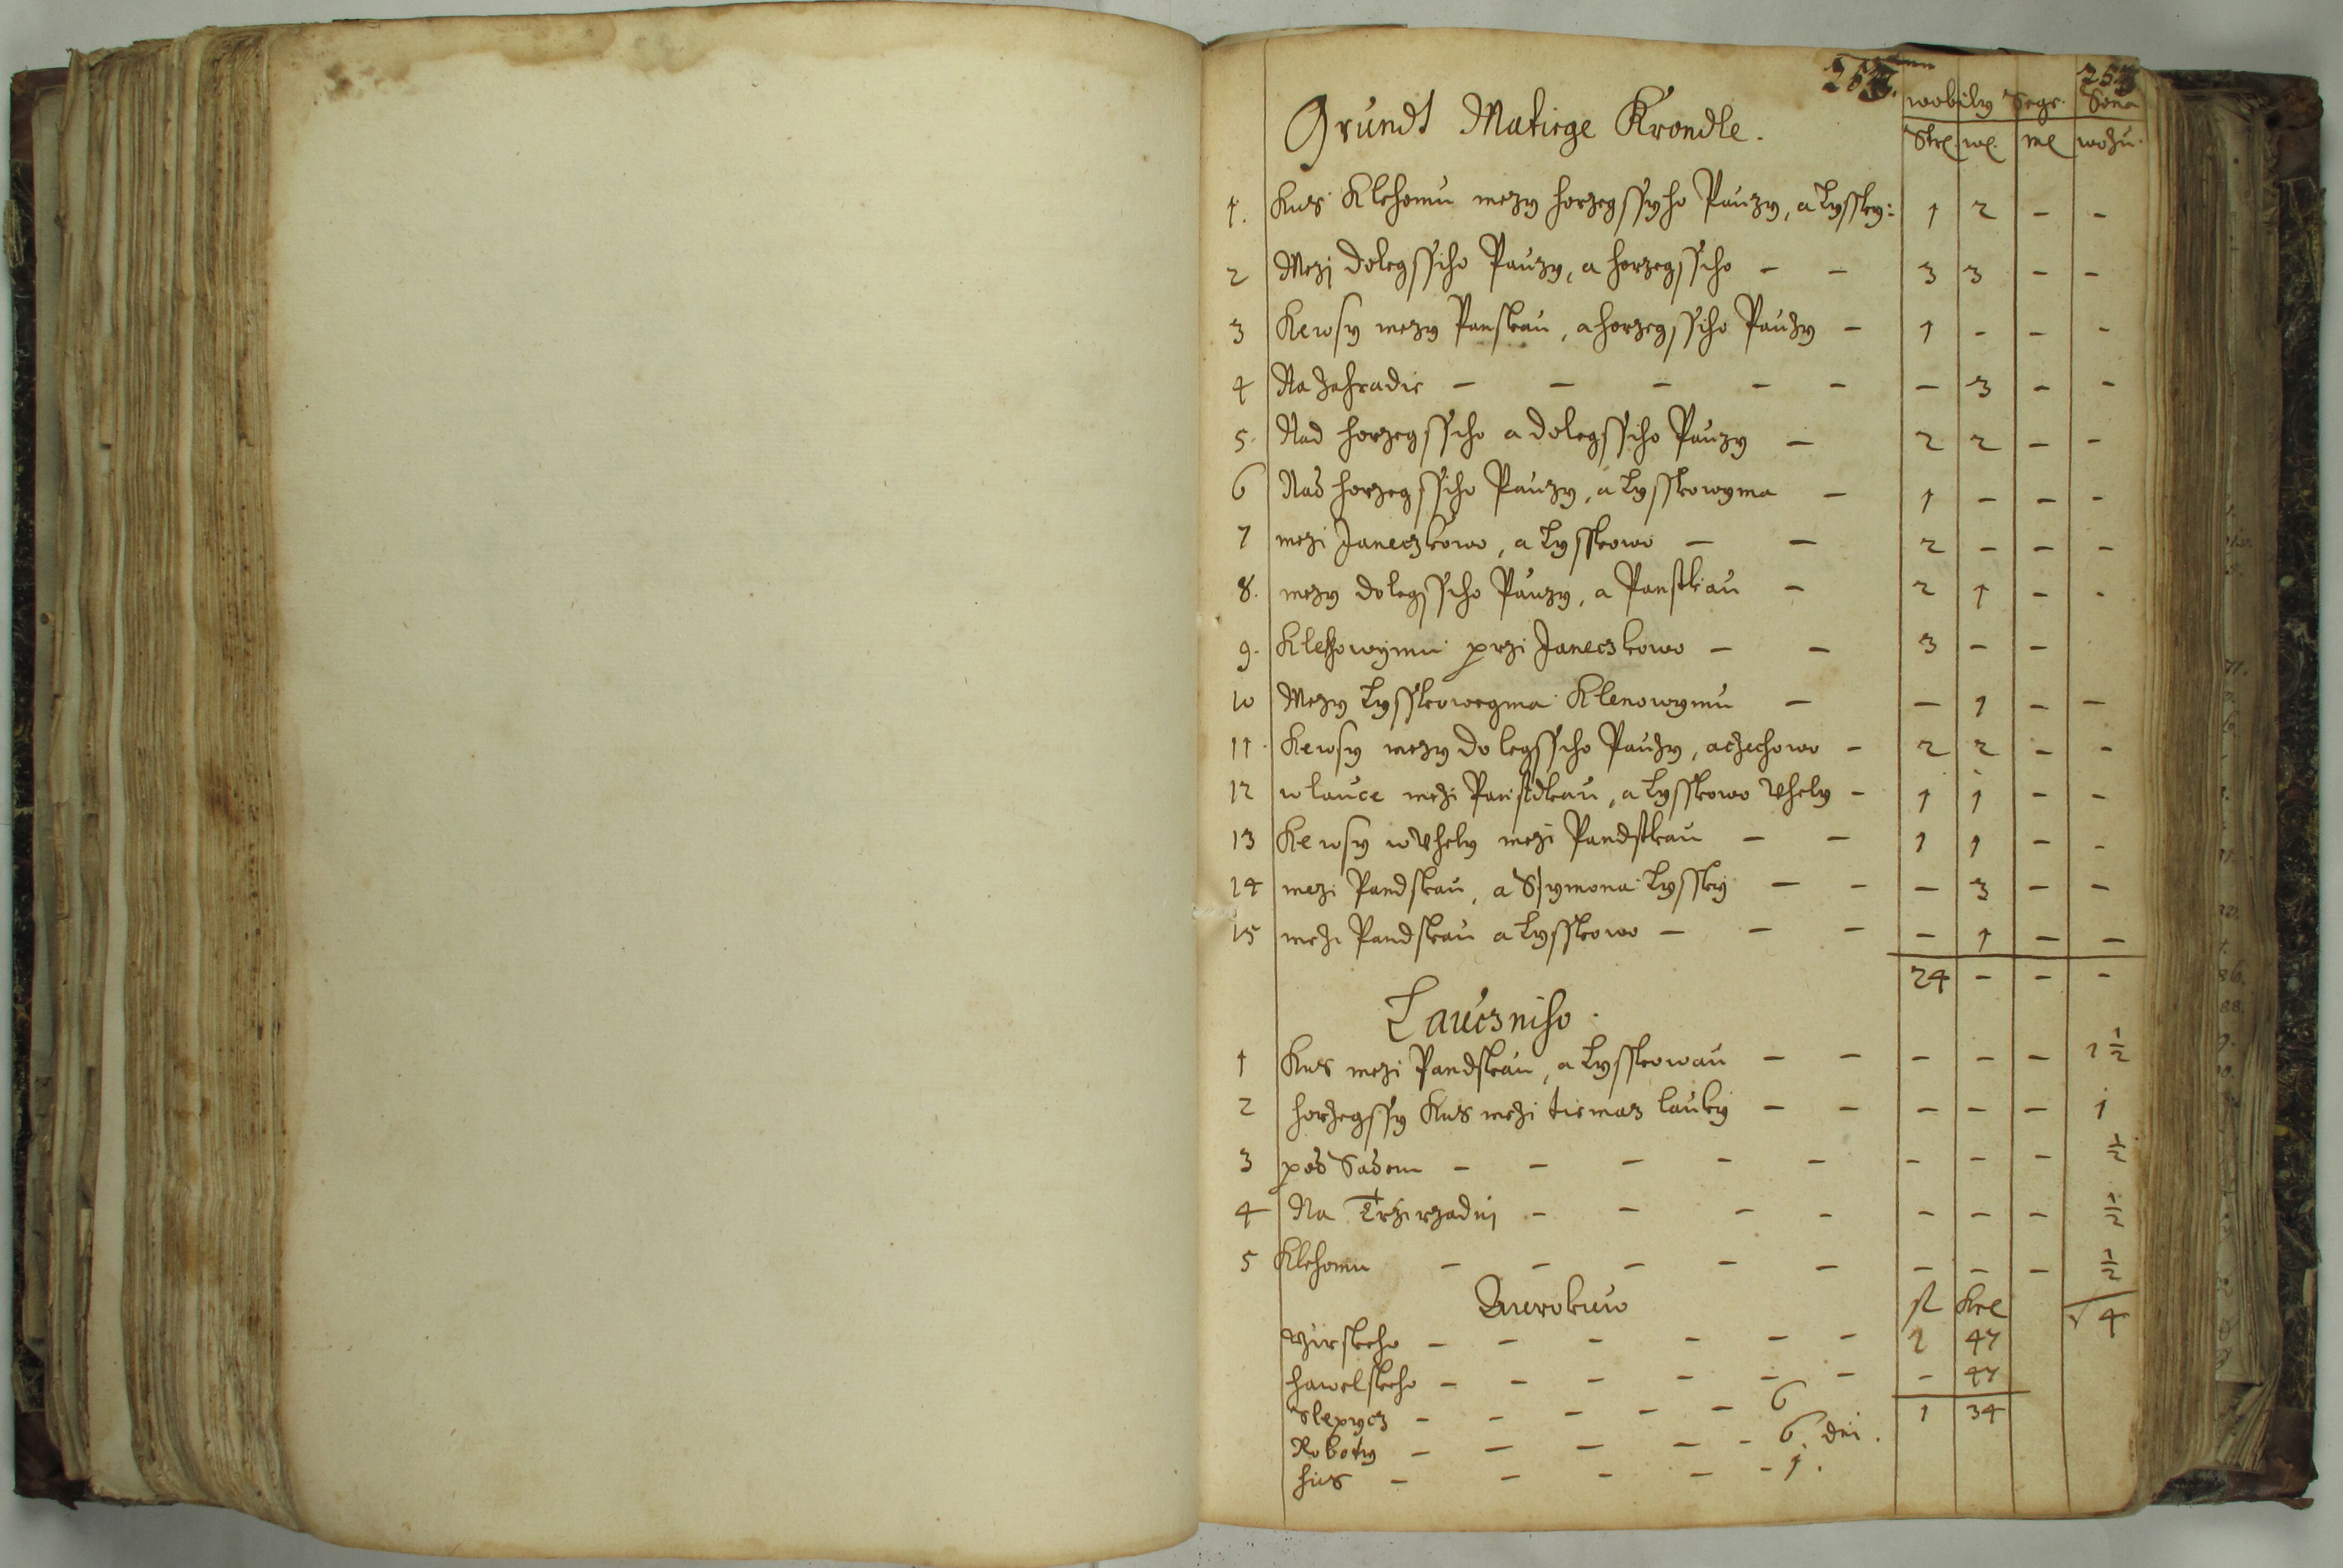 Grundt Matiege Krondle.
wobily Segr. Sena
Strl. wl. ml wozu.
1. Kus Klehomu mezy horzegssyho Pauzy, a Lyssky: 1 2 - -
2 Mezi dolegssiho Pauzy, a horzegssiho - - 3 3 - -
3 Kewsy mezy Panskau, a horzegssiho Pauzy - 1 - - -
4 Na Zahradie - - - - - - 3 - -
5. Nad horzegssiho a dolegssiho Pauzy - 2 2 - -
6 Nad horzegssiho Pauzy, a Lysskowyma - 1 - - -
7 mezi Janeczkowo, a Lysskowo - - 2 - - -
8. mezy dolegssiho Pauzy, a Panskau - 2 1 - -
9. Klehowymu przi Janeczkowo - - 3 - -
10 Mezy Lysskowegma Klenowymu - - 1 - -
11. Kewsy mezy dolegssiho Pauzy, a czechowo - 2 2 - -
12 w lauce mezi Panskau, a Lysskowo Vhely - 1 1 - -
13 Kewsy w Vhely mezi Pandskau - - 1 1 - -
14 mezi Pandskau, a Ssymona Lyssky - - - 3 - -
15 mezi Pandskau a Lysskowo - - - - 1 - -
24 - - -
Lauczniho.
1 Kus mezi Pandskau, a Lysskowau - - - - - 1 1/2
2 horzegssy Kus mezi tiemaz lauky - - - - - 1
3 pod Sadem - - - - - - - - 1/2
4 Na Trzirzadni - - - - - - - 1/2
5 Klehomu - - - - - - - - 1/2
4
Aurokuw
fl Krl
Girskeho - - - - - - 1 47
hawelskeho - - - - - - - 47
Slepycz - - - - - 6
1 34
Roboty - - - - - 6. dni.
hus - - - - - 1.